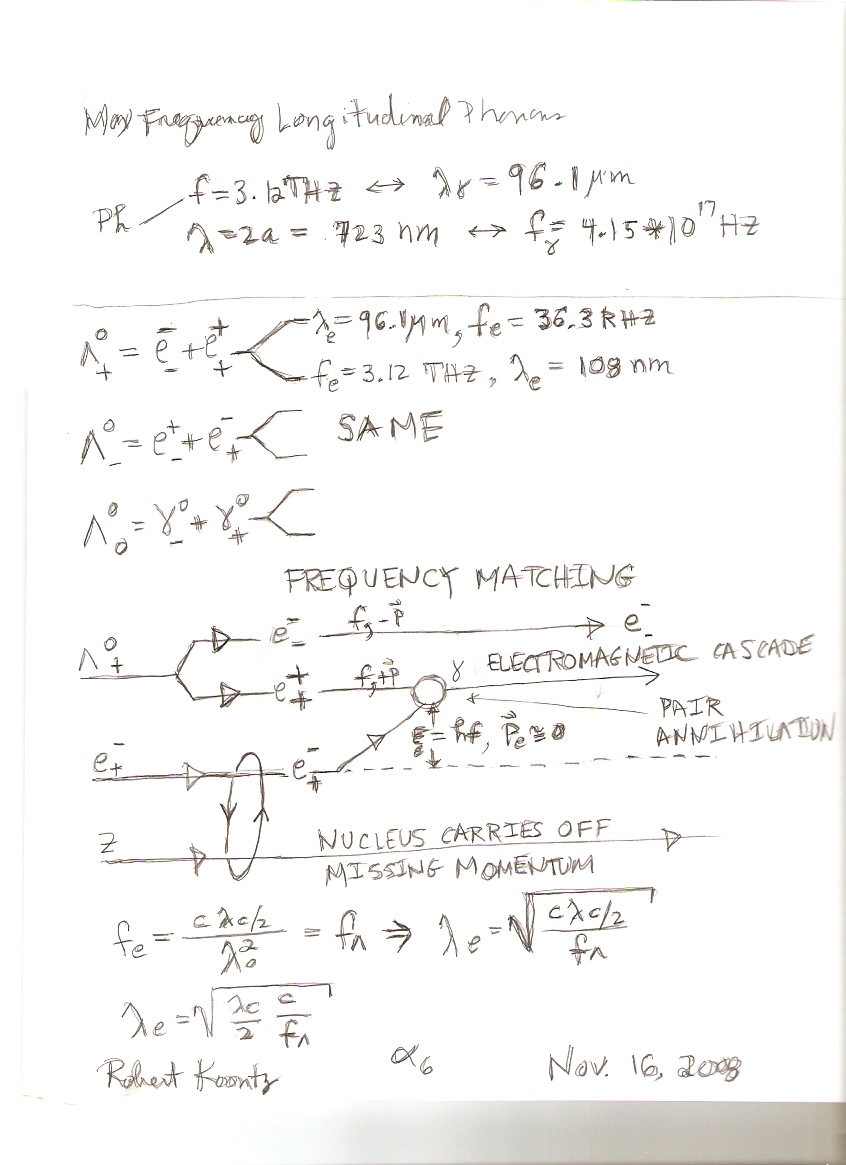 Max Frequency Longitudinal Phonons
Ph
f = 3.12 THz ↔ λγ = 96.1 μm
λ = 2a = .723 nm ↔ fγ = 4.15*10^17 Hz
Λ⁰₊ = e⁻₋ + e⁺₊ < λe = 96.1 μm, fe = 36.3 KHz
fe = 3.12 THz, λe = 108 nm
Λ⁰₋ = e⁺₋ + e⁻₊ < SAME
Λ⁰₀ = γ⁰₋ + γ⁰₊ <
FREQUENCY MATCHING
Λ⁰₊ e⁻₋ f, -p⃗ e⁻₋
e⁺₊ f, +p⃗ γ ELECTROMAGNETIC CASCADE
PAIR
ANNIHILATION
E = hf, P⃗e ≅ 0
e⁻₊ e⁻₊
Z NUCLEUS CARRIES OFF
MISSING MOMENTUM
fe = (cλc/2)/λ₀² = fΛ ⇒ λe = √((cλc/2)/fΛ)
λe = √((λc/2)(c/fΛ))
Robert Koontz α₆ Nov. 16, 2008